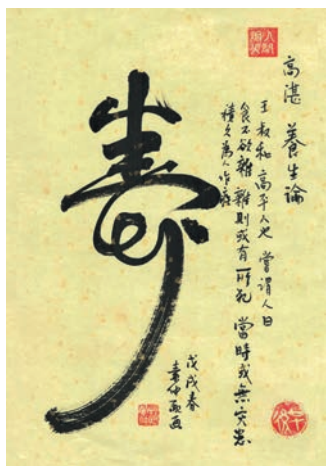 高湛 養生論
王叔和 高平人也 嘗謂人曰
食不欲雜 雜則或有所犯 當時或無灾患
積久為人作疾
壽
戊戌春
仲 画